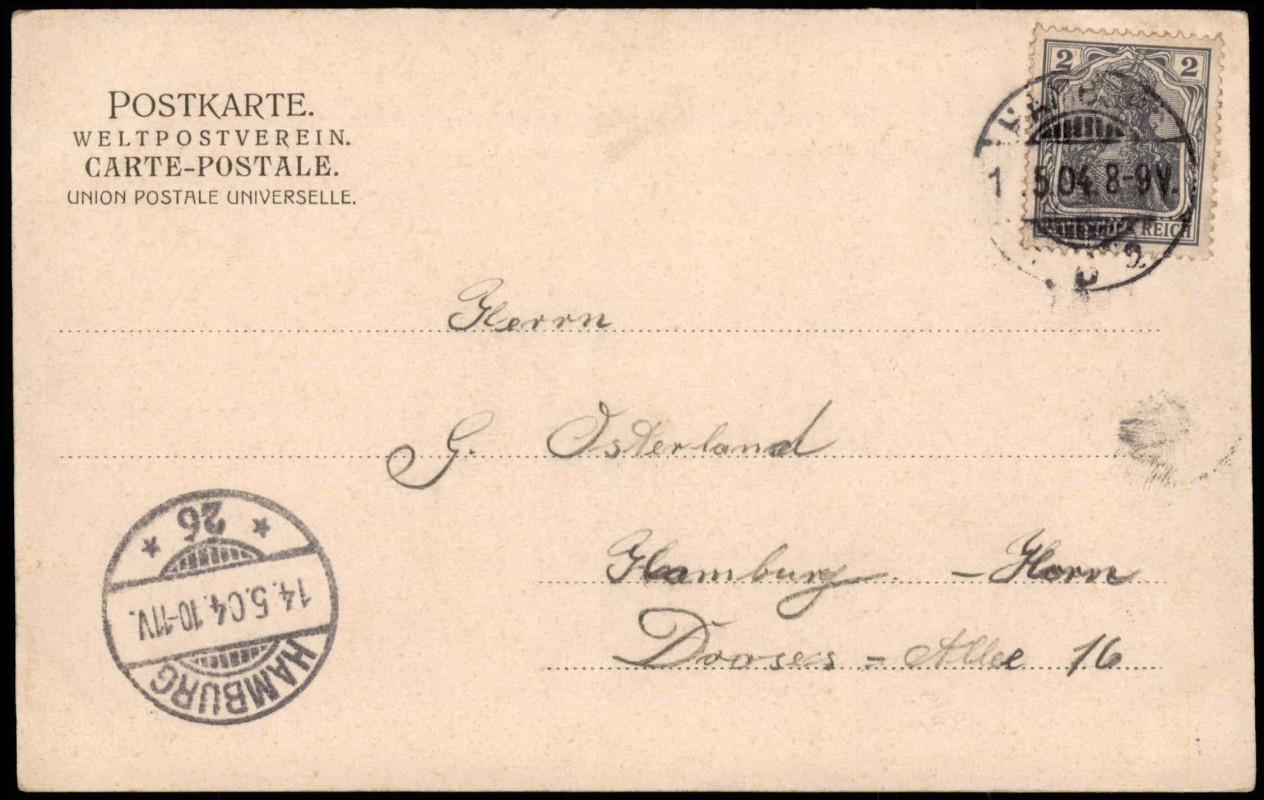 POSTKARTE.
WELTPOSTVEREIN.
CARTE-POSTALE.
UNION POSTALE UNIVERSELLE.
2 2
5.04. 8-9V.
REICH
Herrn
G. Osterland
Hamburg - Horn
Dooses - Allee 16
26
14.5.04. 10-11V.
HAMBURG